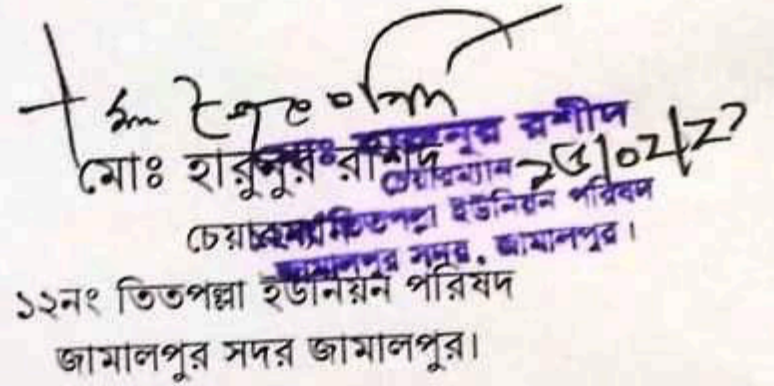 মোঃ হারুনুর রাশিদ
চেয়ারম্যান
১২নং তিতপল্লা ইউনিয়ন পরিষদ
জামালপুর সদর জামালপুর।
মোঃ হারুনুর রশীদ
চেয়ারম্যান
তিতপল্লা ইউনিয়ন পরিষদ
জামালপুর সদর, জামালপুর।